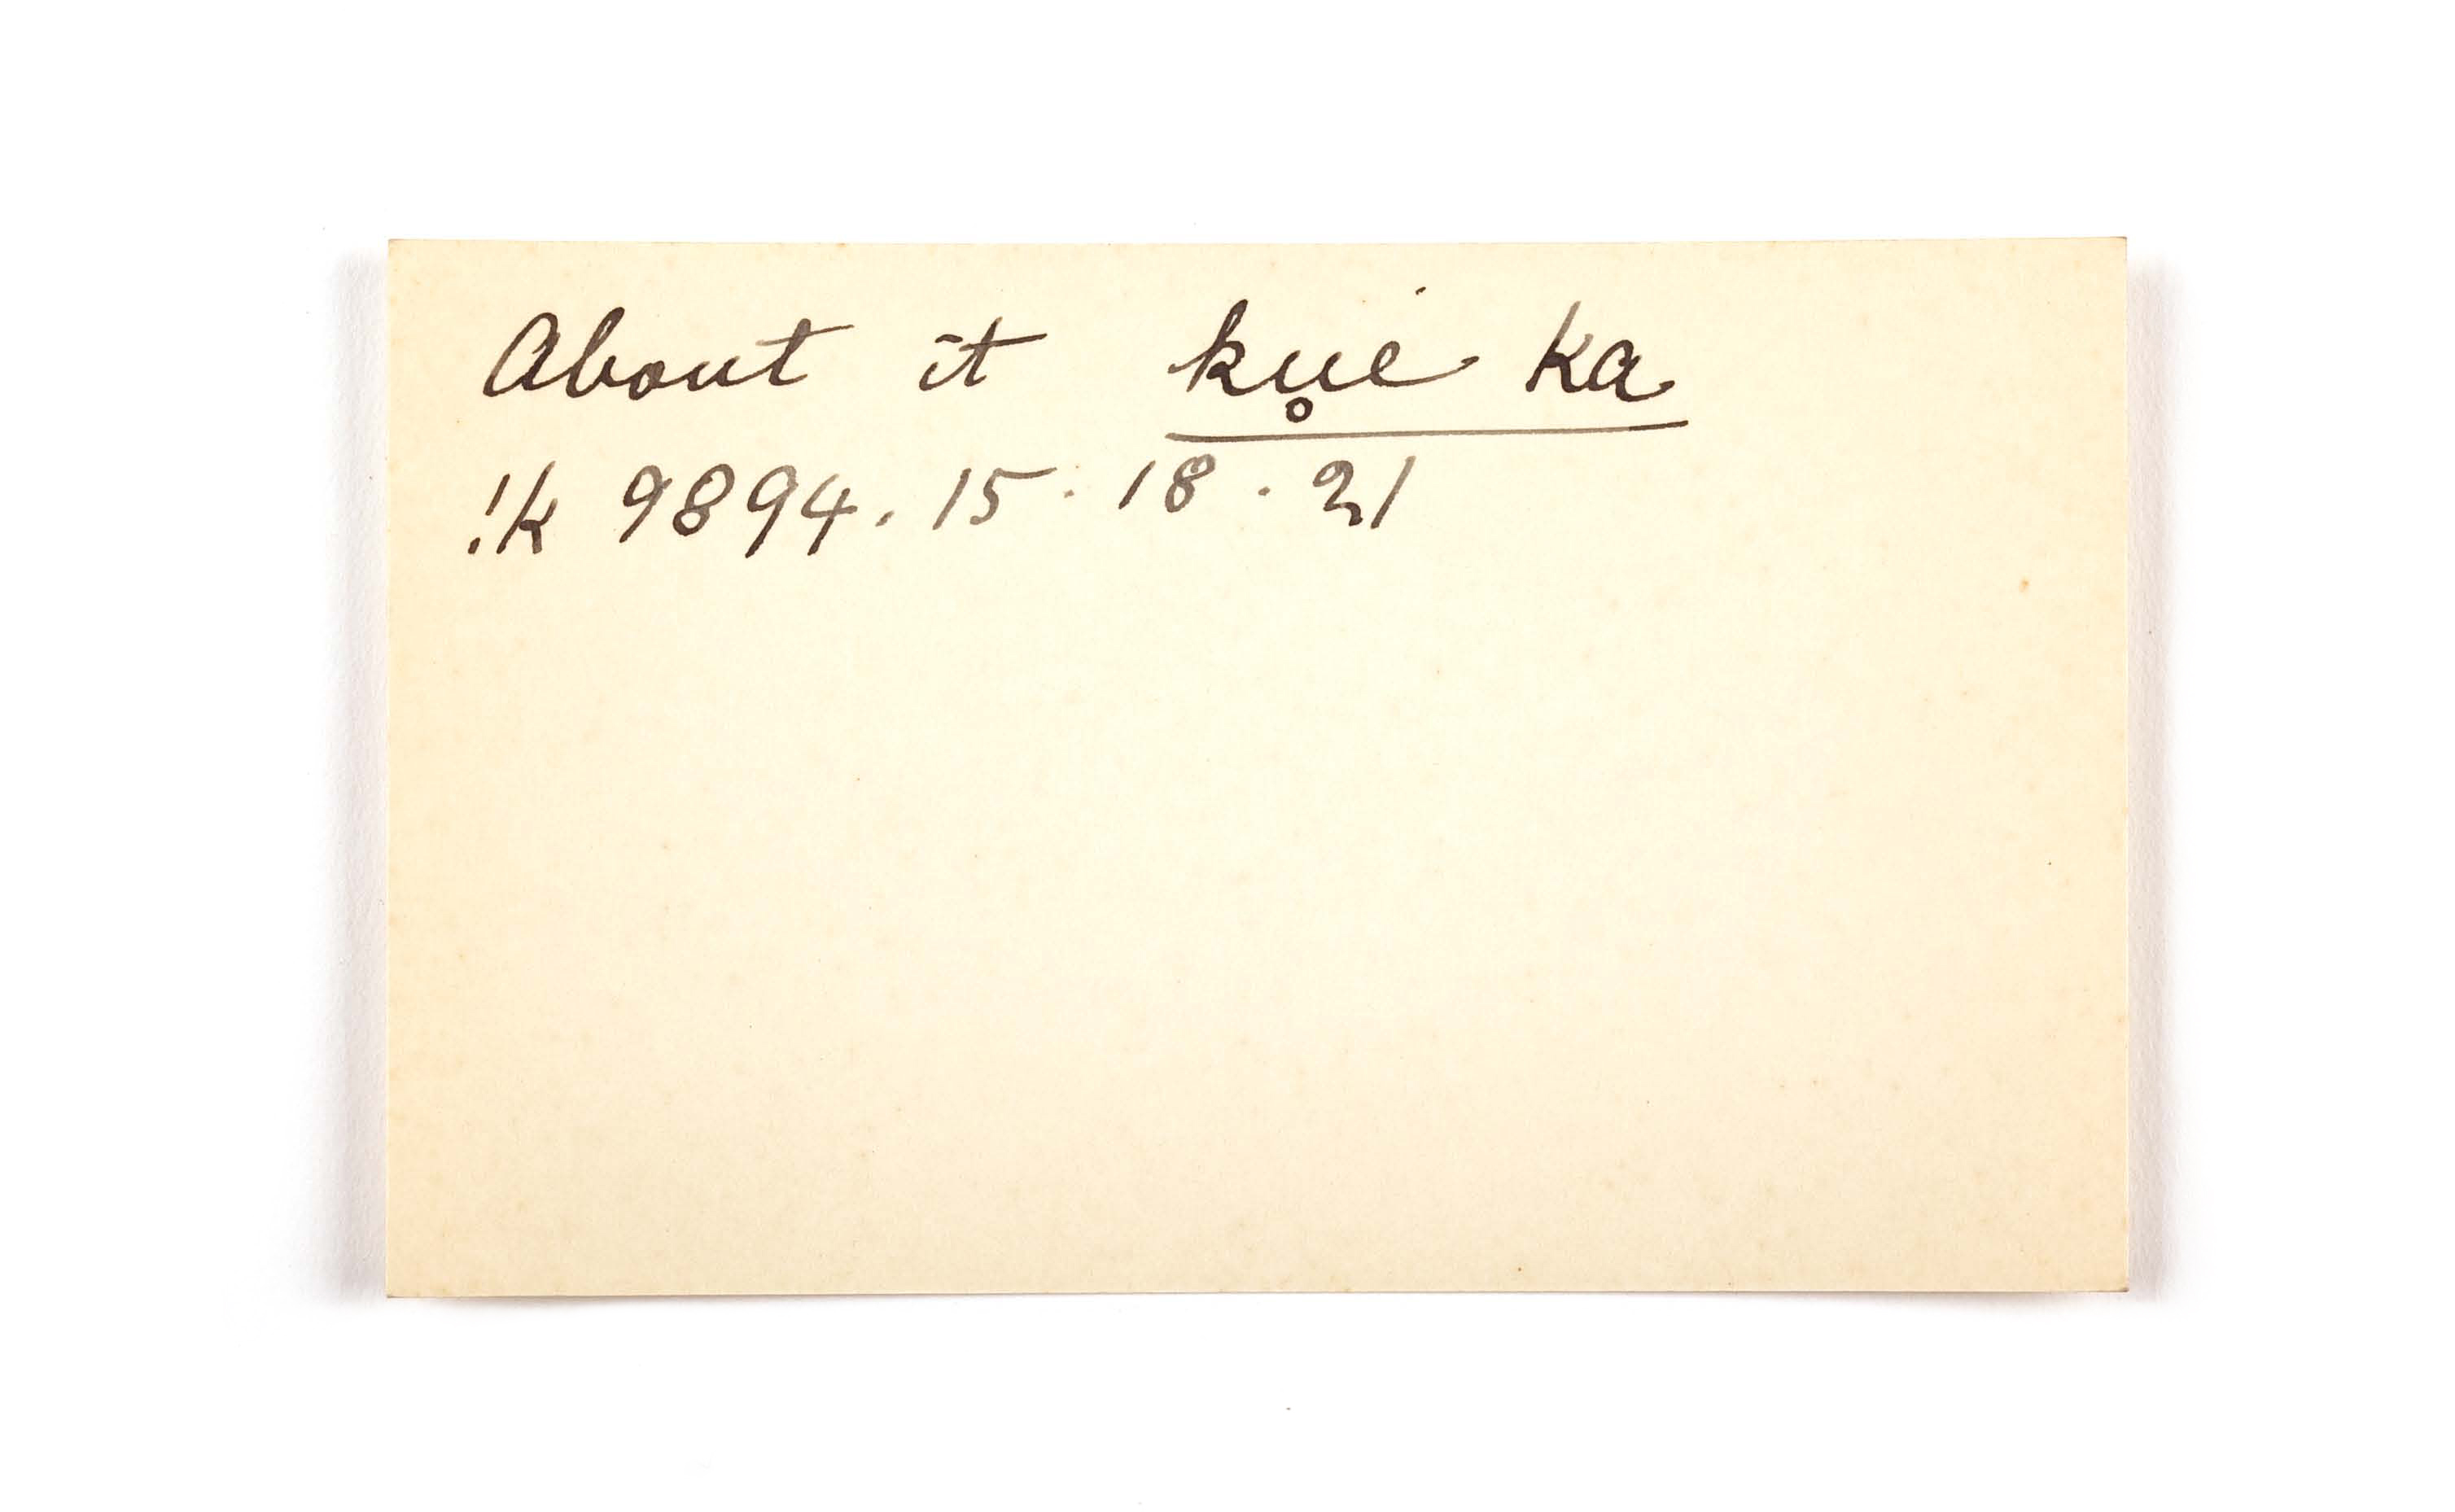 About it ku̥i ka
!k 9894. 15. 18. 21